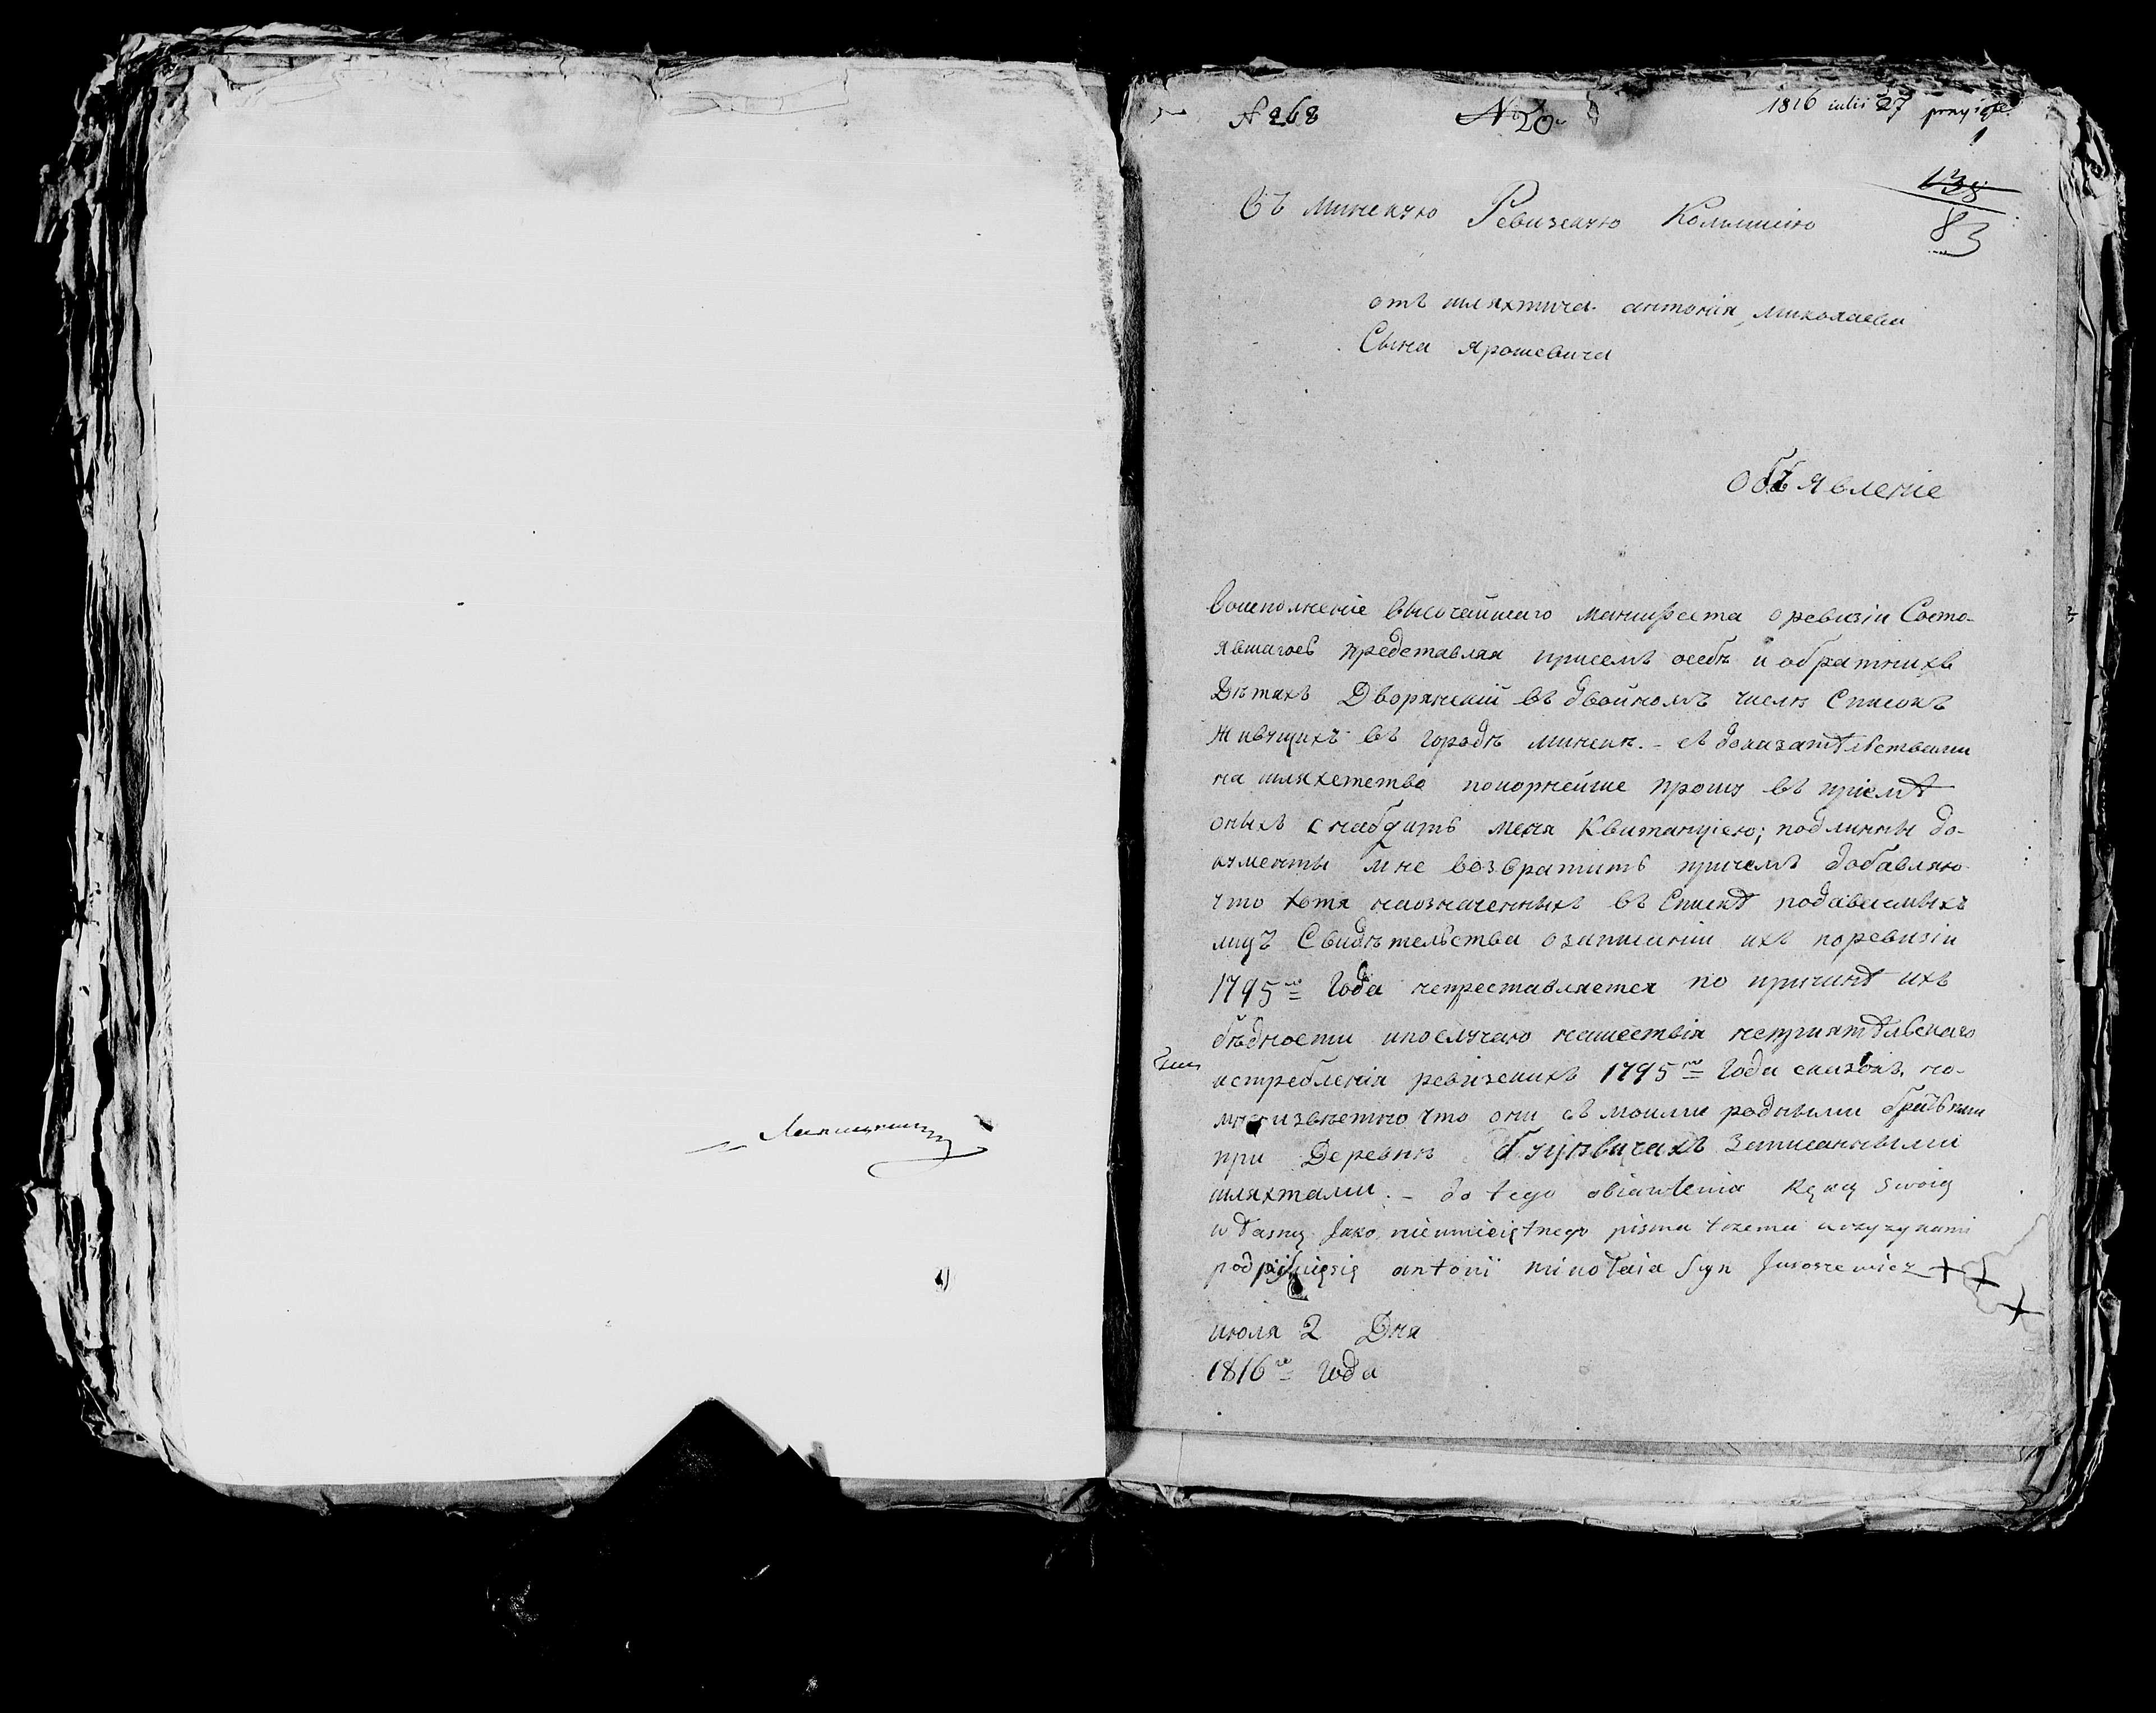 № 268 № 20 1816 iulii 27 przyięte
1
138
83
Въ минскую Ревизскую Коммисію
отъ шляхтича антонія миколаева
Сына ярошевича
объявленіе
Воисполненіе высочайшаго манифеста оревизіи Состо-
явшагось представляя присемъ осебѣ и обратнихъ
Дѣтяхъ Дворянскій въ двойномъ числѣ Списокъ
живущихъ въ городѣ минскѣ. – съ доказательствами
на шляхетство покорнейше прошу въ пріемѣ
оныхъ снабдить меня Квитанціею; подлинны до-
кументы мне возвратить причемъ добавляю
что хотя наозначенныхъ въ Спискѣ подаваемыхъ
лицъ Свидѣтельства озаписаніи ихъ поревизіи
1795го Года непреставляется по причинѣ ихъ
бѣдности ипослучаю нашествія непріятельскаго
истребленія ревизскихъ 1795го Года сказокъ, но-
мнѣ извѣстно что они съ моими родными братьями
при Деревнѣ записанными
шляхтами. – do tego obiawlenia Ręką swoią
własną Jako nieumieiętnego pisma trzema krzyzykami
podpisuięsię antonii mikołaia Syn Jaroszewicz +++
июля 2 Дня
1816го Года